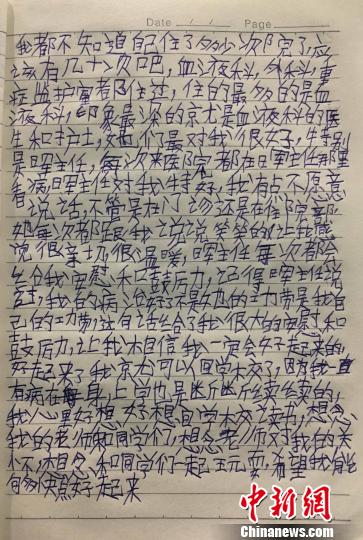 Date / / Page
我都不知道自己住了多少次院了,应
该有几十次吧,血液科,外科,重
症监护室都住过,住的最多的是血
液科,印象最深的就是血液科的医
生和护士,她们最对我很好,特别
是晖主任,每次来医院都在晖主任那里
看病,晖主任对我特好,我有点不愿意
说话,不管是在门诊还是在住院部
她每次都跟我说说笑笑的,让我感
觉很亲切,很温暖,晖主任每次都会
给我安慰和鼓励,记得晖主任说
过:我的病治好不是她的功劳是我自
己的功劳,这句话给了我很大的安慰和
鼓励,让我相信我一定会好起来的,
好起来了我就可以回学校了,因为我一直
有病在身,上学也是断断续续的,
我心里好想好想回学校读书,想念
我的老师和同学们,想念老师对我的关
怀,想念和同学们一起玩耍,希望我能
够快点好起来
中新网
Chinanews.com